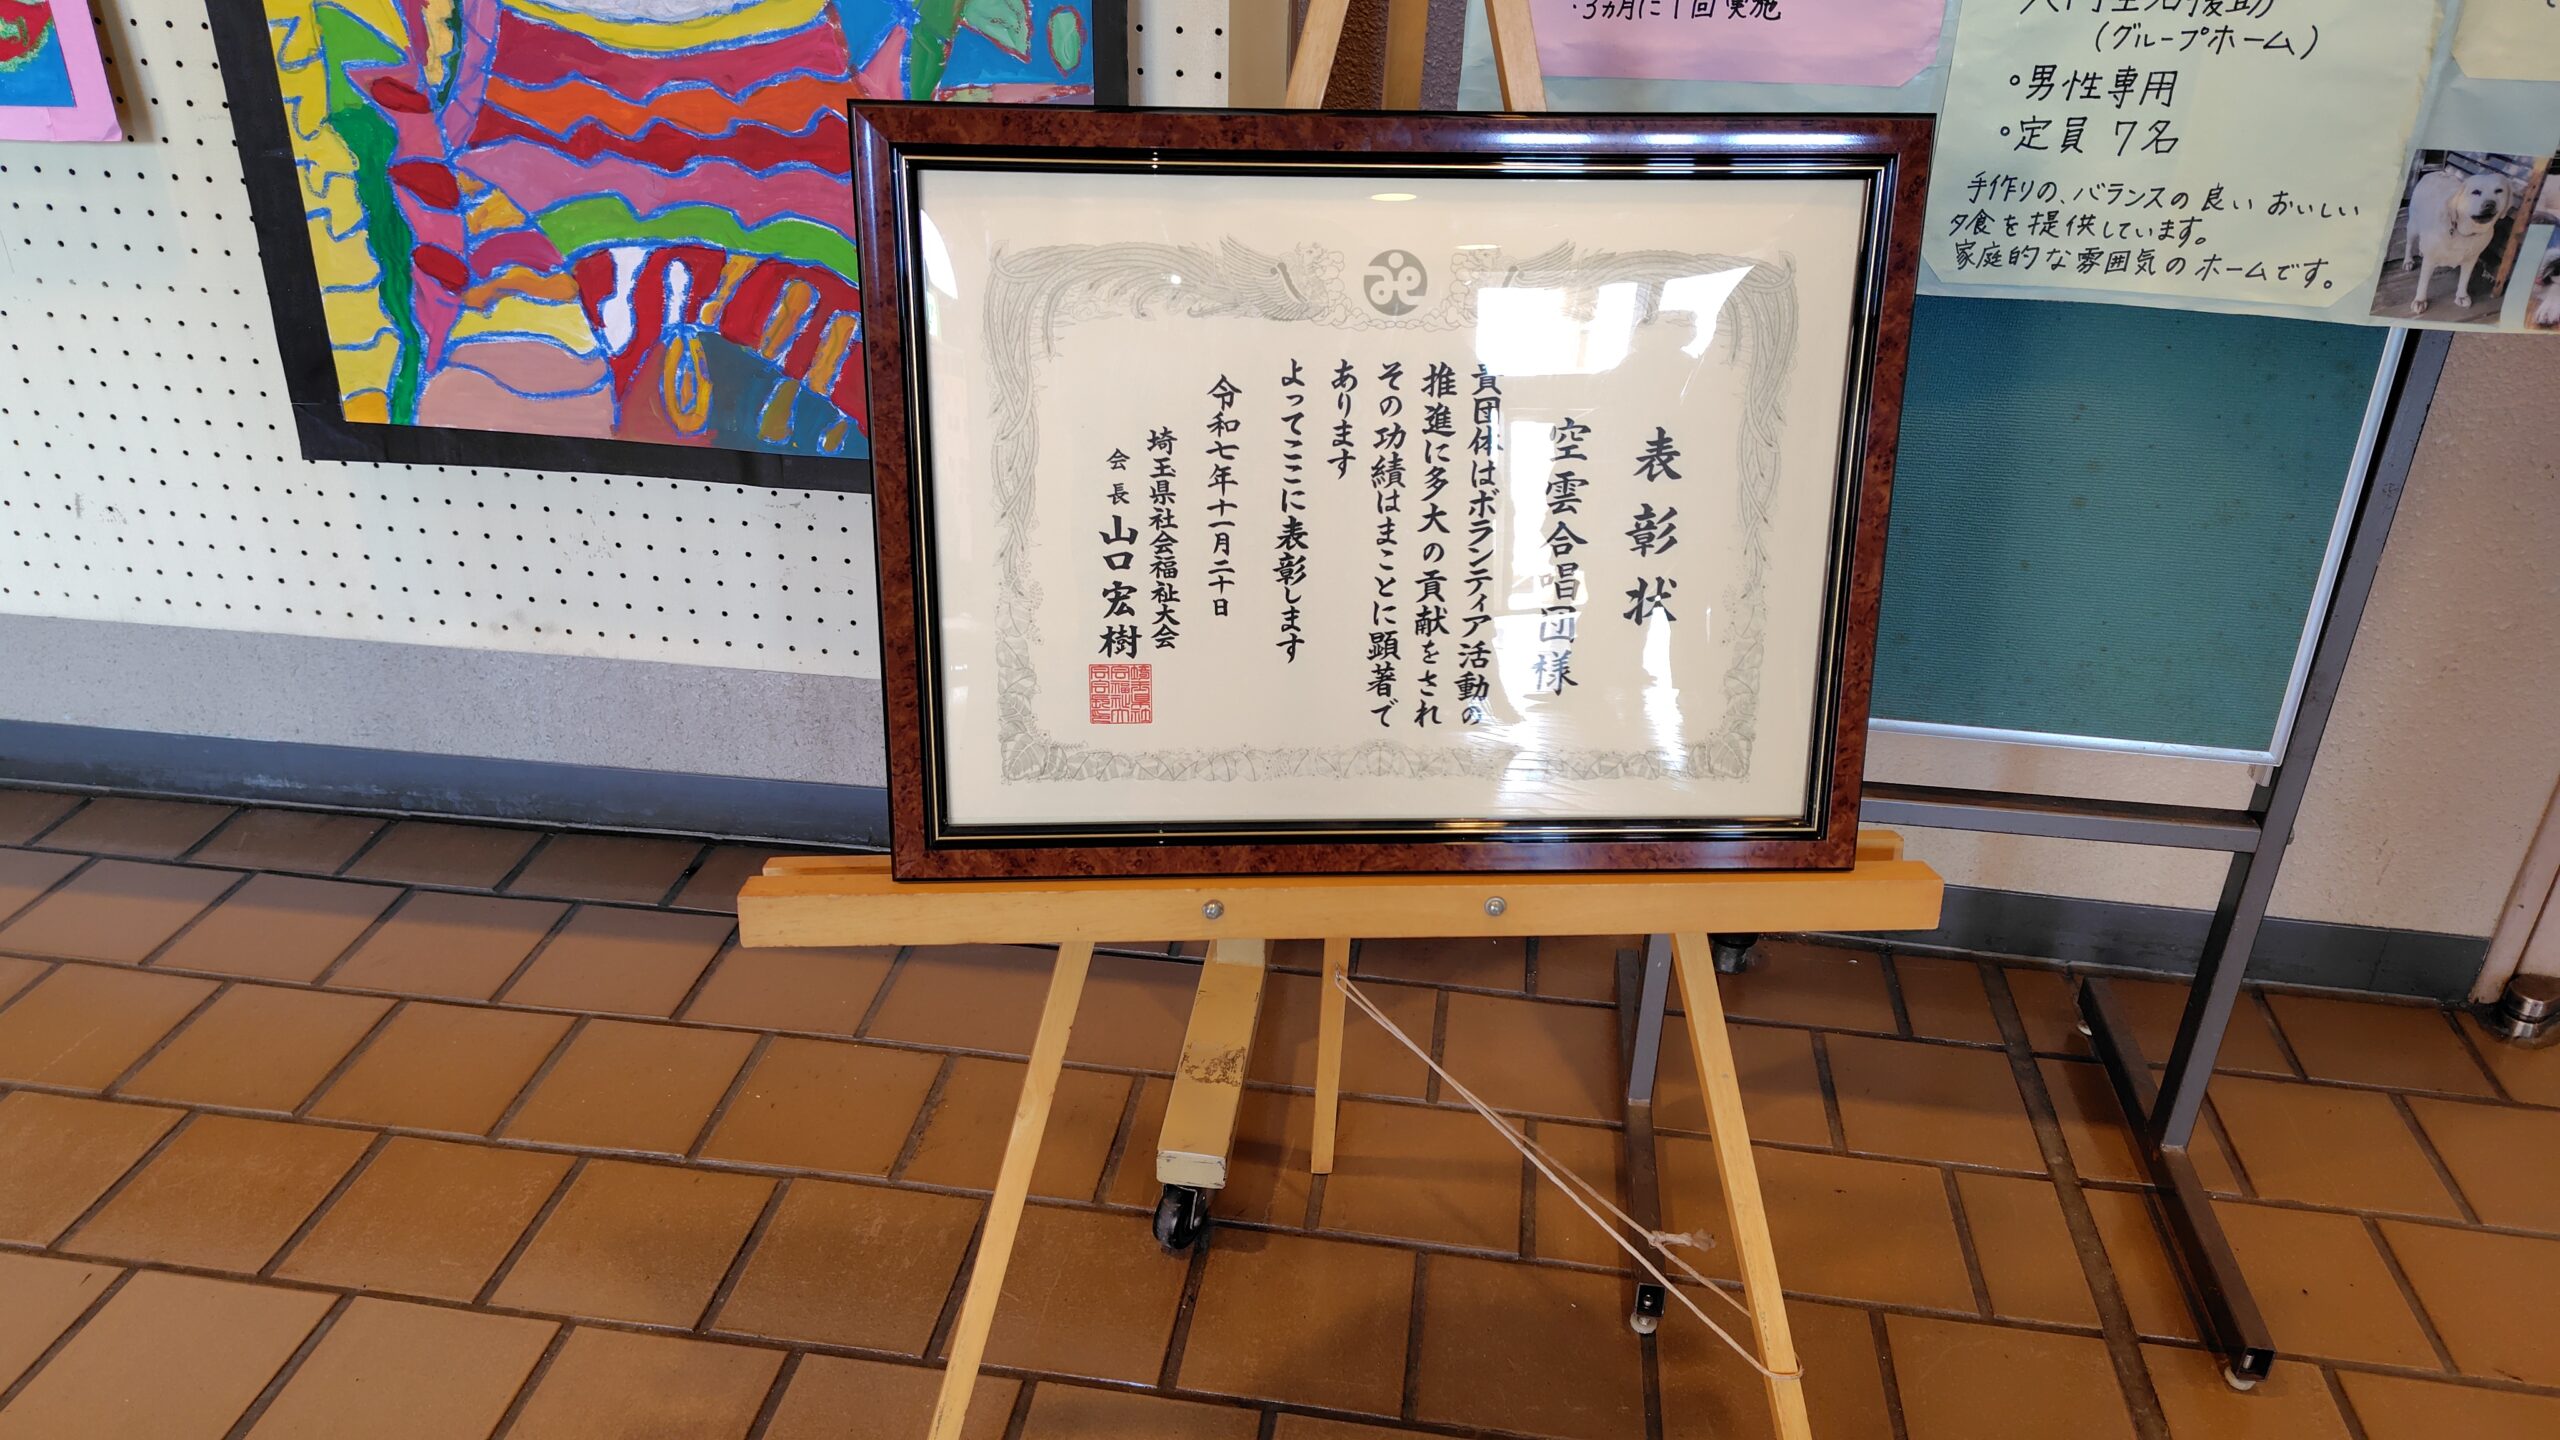 表彰状
空雲合唱団様
貴団体はボランティア活動の
推進に多大の貢献をされ
その功績はまことに顕著で
あります
よってここに表彰します
令和七年十一月二十日
埼玉県社会福祉大会
会長 山口宏樹
・3ヵ月に1回実施
(グループホーム)
○男性専用
○定員 7名
手作りの、バランスの良いおいしい
夕食を提供しています。
家庭的な雰囲気のホームです。